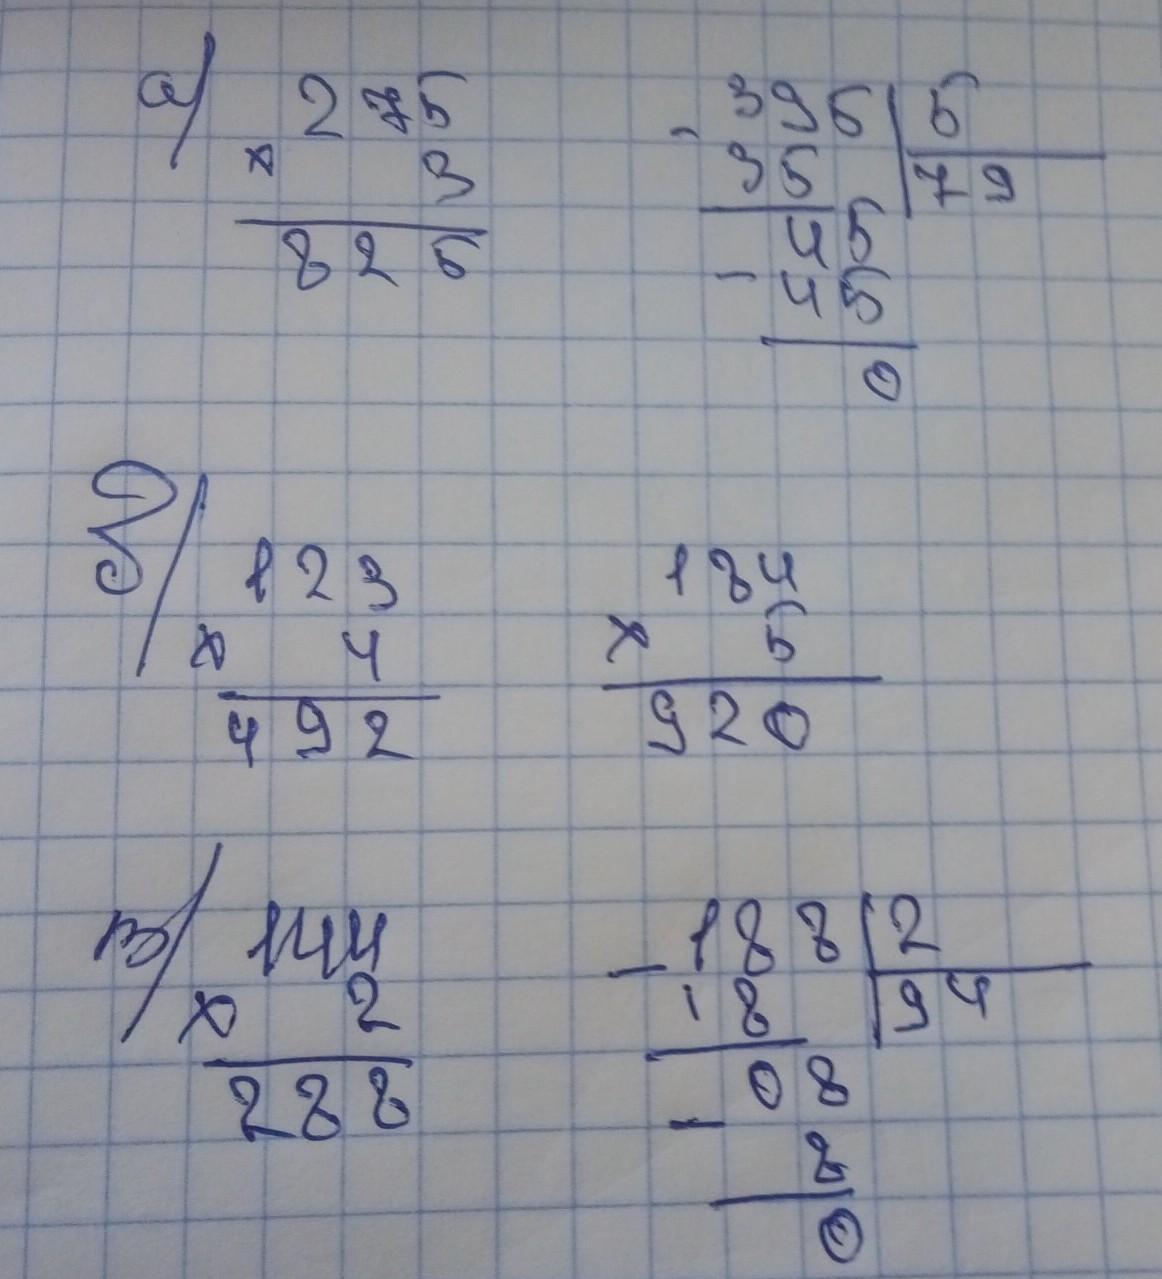 а/ 275
× 3
825
- 395 | 5
35 | 79
45
- 45
0
б/ 123
× 4
492
184
× 5
920
в/ 144
× 2
288
- 188 | 2
18 | 94
08
- 8
0